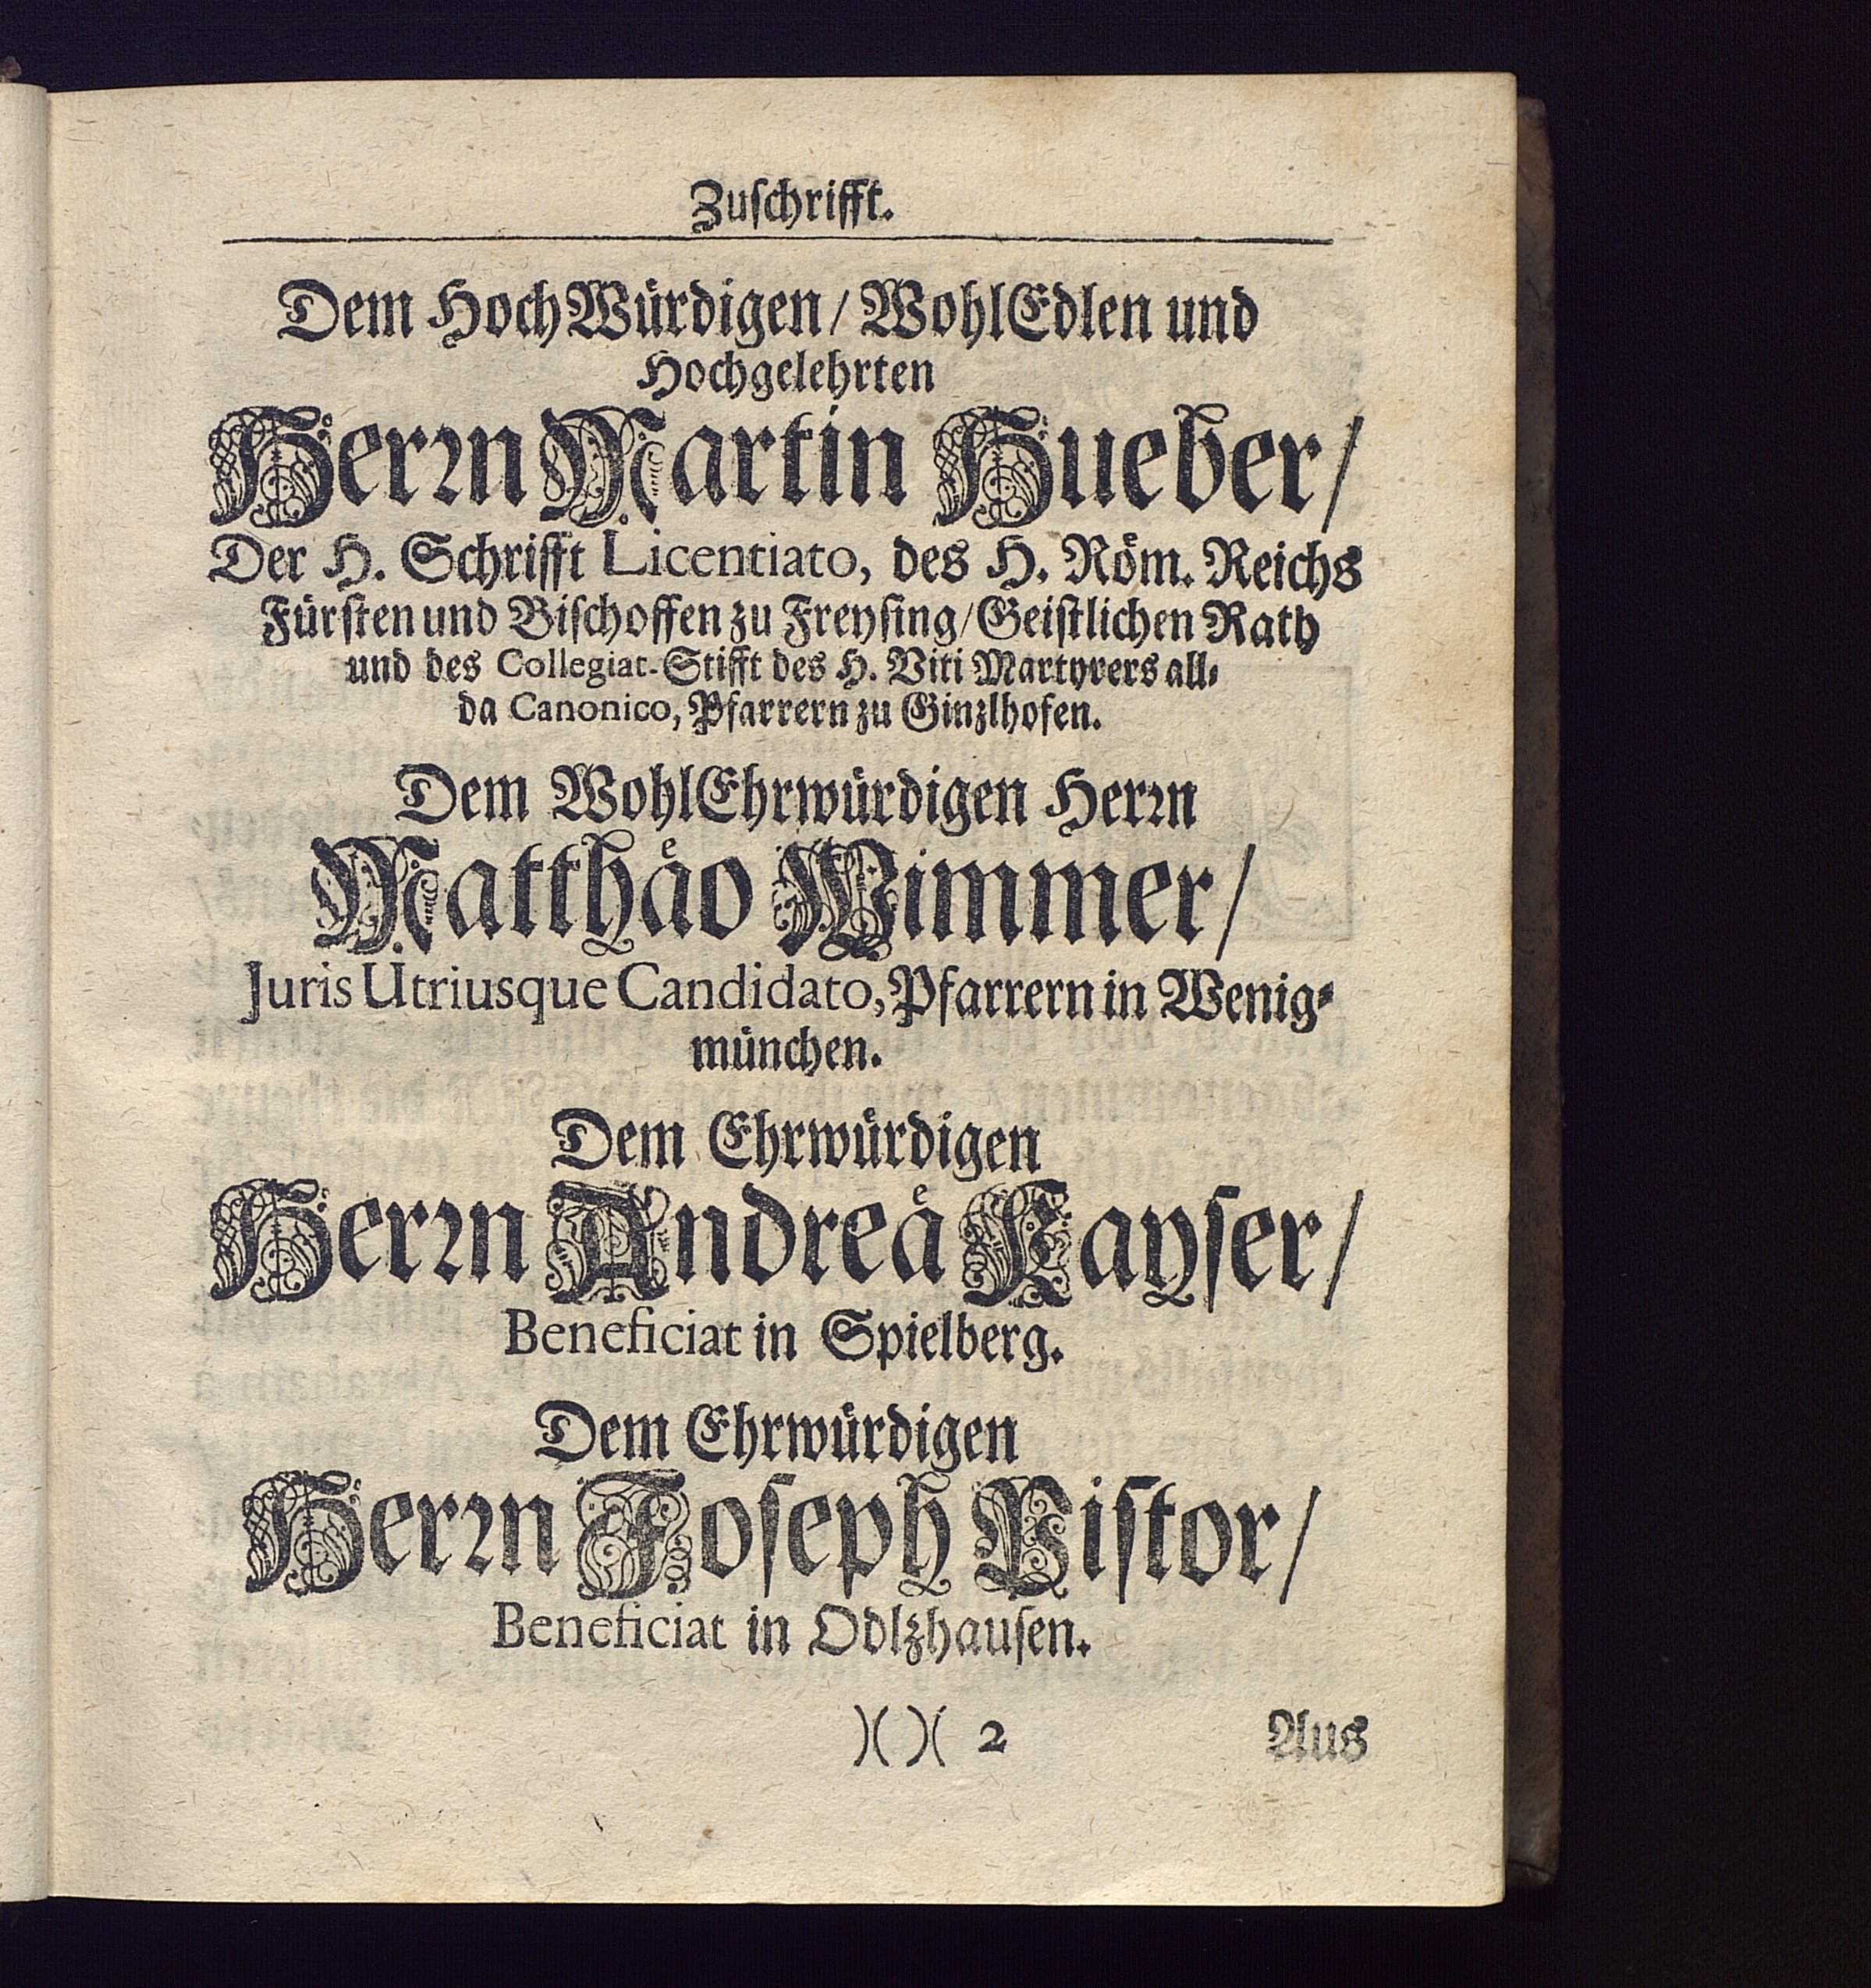 Zuſchrifft.
Dem HochWürdigen/ WohlEdlen und
Hochgelehrten
Herꝛn Martin Hueber/
Der H. Schrifft Licentiato, des H. Röm. Reichs
Fürſten und Biſchoffen zu Freyſing/ Geiſtlichen Rath
und des Collegiat-Stifft des H. Viti Martyrers all-
da Canonico, Pfarrern zu Ginzlhofen.
Dem WohlEhrwürdigen Herꝛn
Matthäo Wimmer/
Juris Utriusque Candidato, Pfarrern in Wenig-
münchen.
Dem Ehrwürdigen
Herꝛn Andreä Kayſer/
Beneficiat in Spielberg.
Dem Ehrwürdigen
Herꝛn Joſeph Piſtor/
Beneficiat in Odlzhauſen.
)( )( 2 Aus